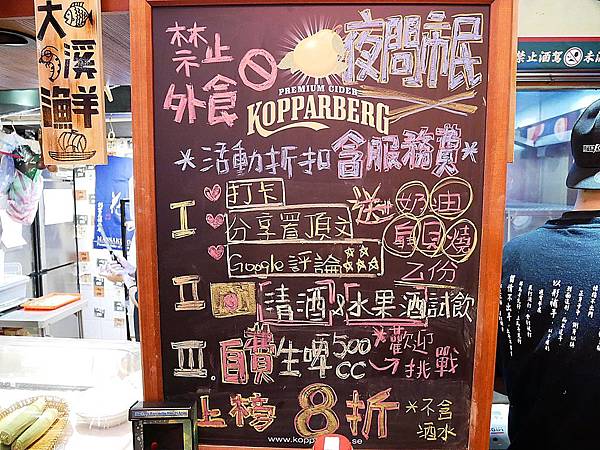 大溪漁鮮
禁止外食
夜間市民
PREMIUM CIDER
KOPPARBERG
*活動折扣含服務費*
I
打卡
分享置頂文
Google評論
送奶油扇貝燒乙份
II
清酒&水果酒試飲
III. 自費生啤500cc
*歡迎挑戰
上榜8折
*不含酒水
禁止酒駕
未